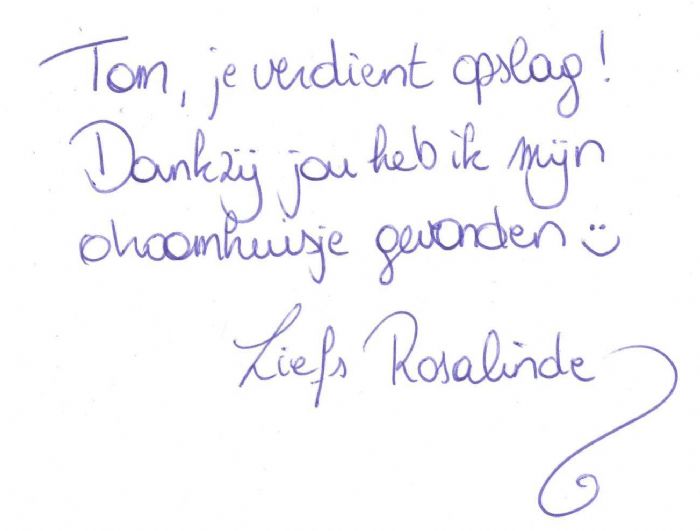 Tom, je verdient opslag!
Dankzij jou heb ik mijn
droomhuisje gevonden :)
Liefs Rosalinde